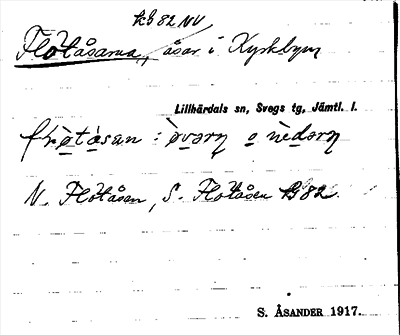 kb 82 NV
Flötåsarna, åsar i Kyrkbyn
Lillhärdals sn, Svegs tg, Jämtl. l.
N. Flötåsen, S. Flötåsen B82.
S. ÅSANDER 1917.